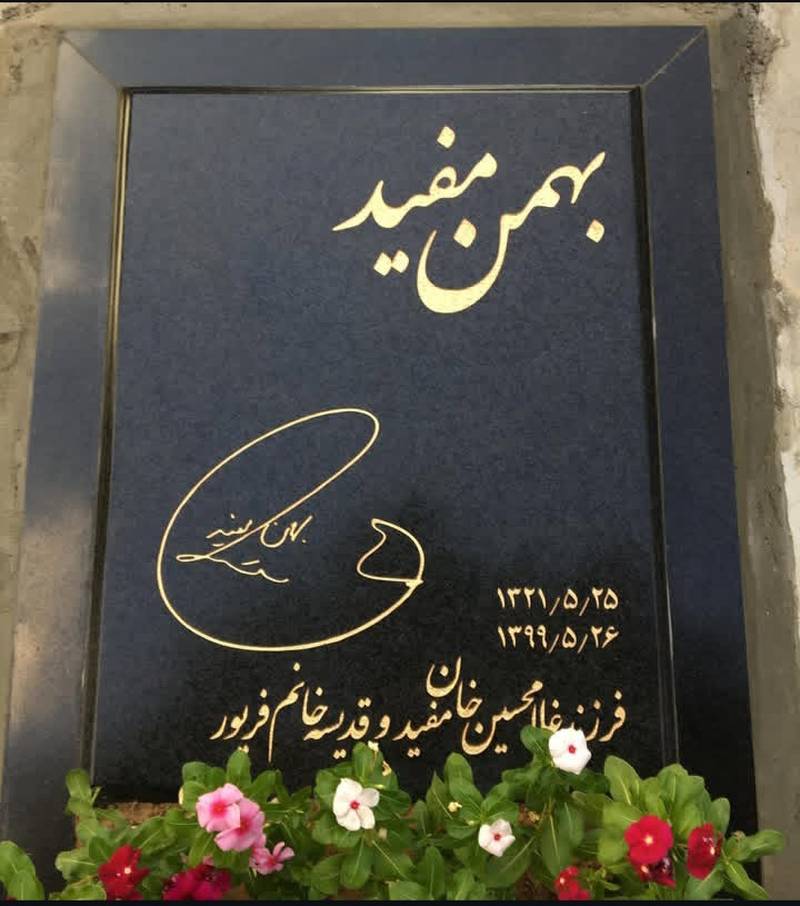 بهمن مفید
بهمن مفید
۱۳۲۱/۵/۲۵
۱۳۹۹/۵/۲۶
فرزند غلامحسین خان مفید و قدیسه خانم فرپور